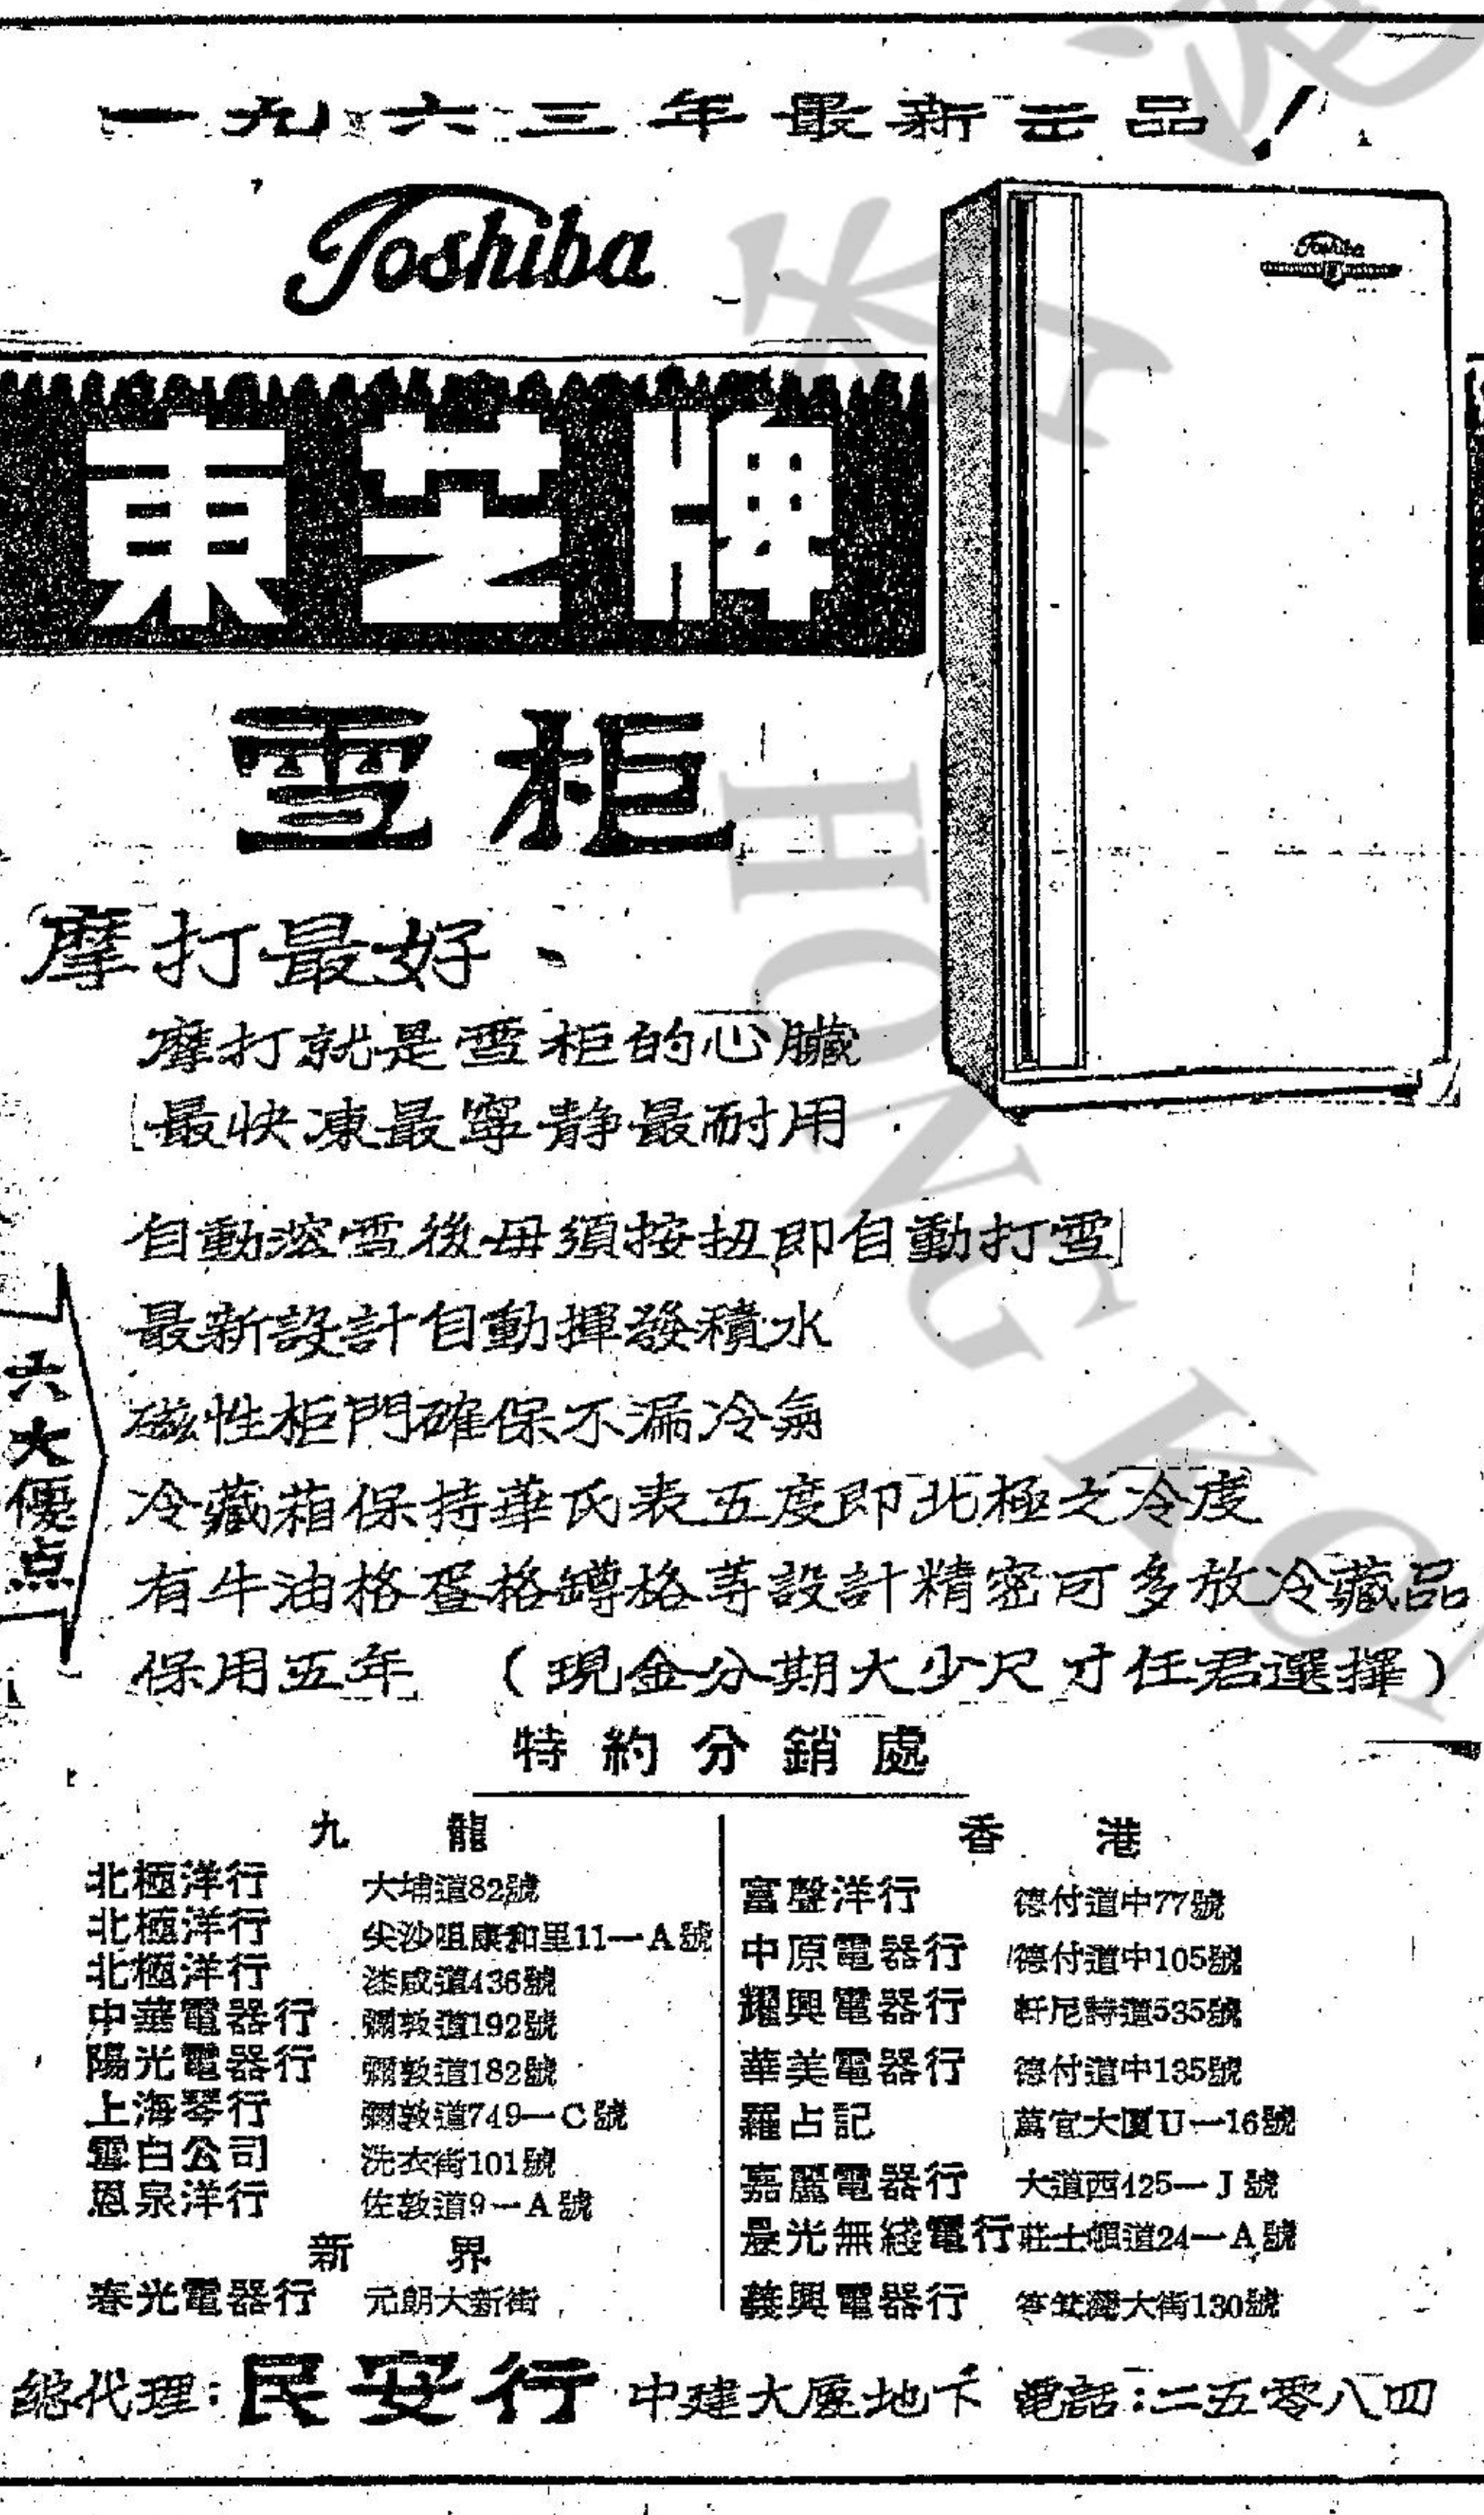 一九六三年最新出品！
Toshiba
Toshiba
東芝牌
雪柜
摩打最好、
摩打就是雪柜的心臟
最快凍最寧静最耐用
自動溶雪後毋須按扭即自動打雪
最新設計自動揮發積水
磁性柜門確保不漏冷氣
冷藏箱保持華氏表五度即北極之冷度
有牛油格蛋格罇格等設計精密可多放冷藏品
保用五年 （現金分期大少尺寸任君選擇）
六大優点
特約分銷處
九龍
北極洋行 大埔道82號
北極洋行 尖沙咀康和里11—A號
北極洋行 漆咸道436號
中華電器行 彌敦道192號
陽光電器行 彌敦道182號
上海琴行 彌敦道749—C號
雪白公司 洗衣街101號
恩泉洋行 佐敦道9—A號
新界
春光電器行 元朗大新街
香港
富聲洋行 德付道中77號
中原電器行 德付道中105號
耀興電器行 軒尼詩道535號
華美電器行 德付道中135號
羅占記 萬宜大厦U—16號
嘉麗電器行 大道西425—J號
晨光無綫電行 莊士頓道24—A號
義興電器行 筲箕灣大街130號
總代理：民安行 中建大厦地下 電話：二五零八四
HONG KO